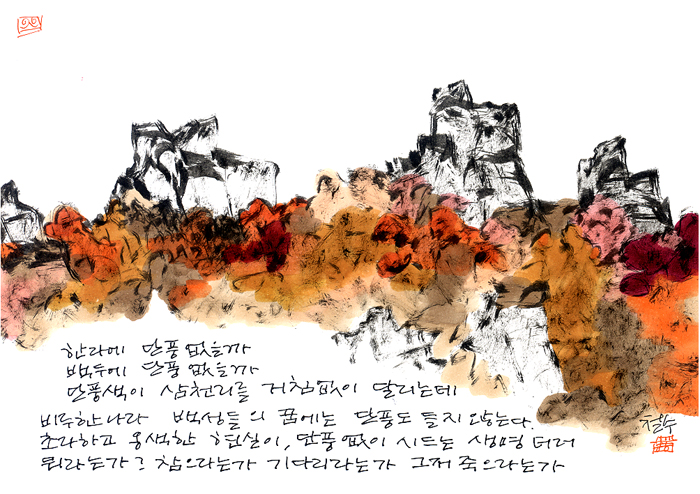 한라에 단풍 없을까
백두에 단풍 없을까
단풍색이 삼천리를 거침없이 달리는데
비루한 나라 백성들의 꿈에는 단풍도 들지 않는다.
초라하고 옹색한 현실이, 단풍 없이 시드는 생명더러
뭐라는가? 참으라는가 기다리라는가 그저 죽으라는가
철수